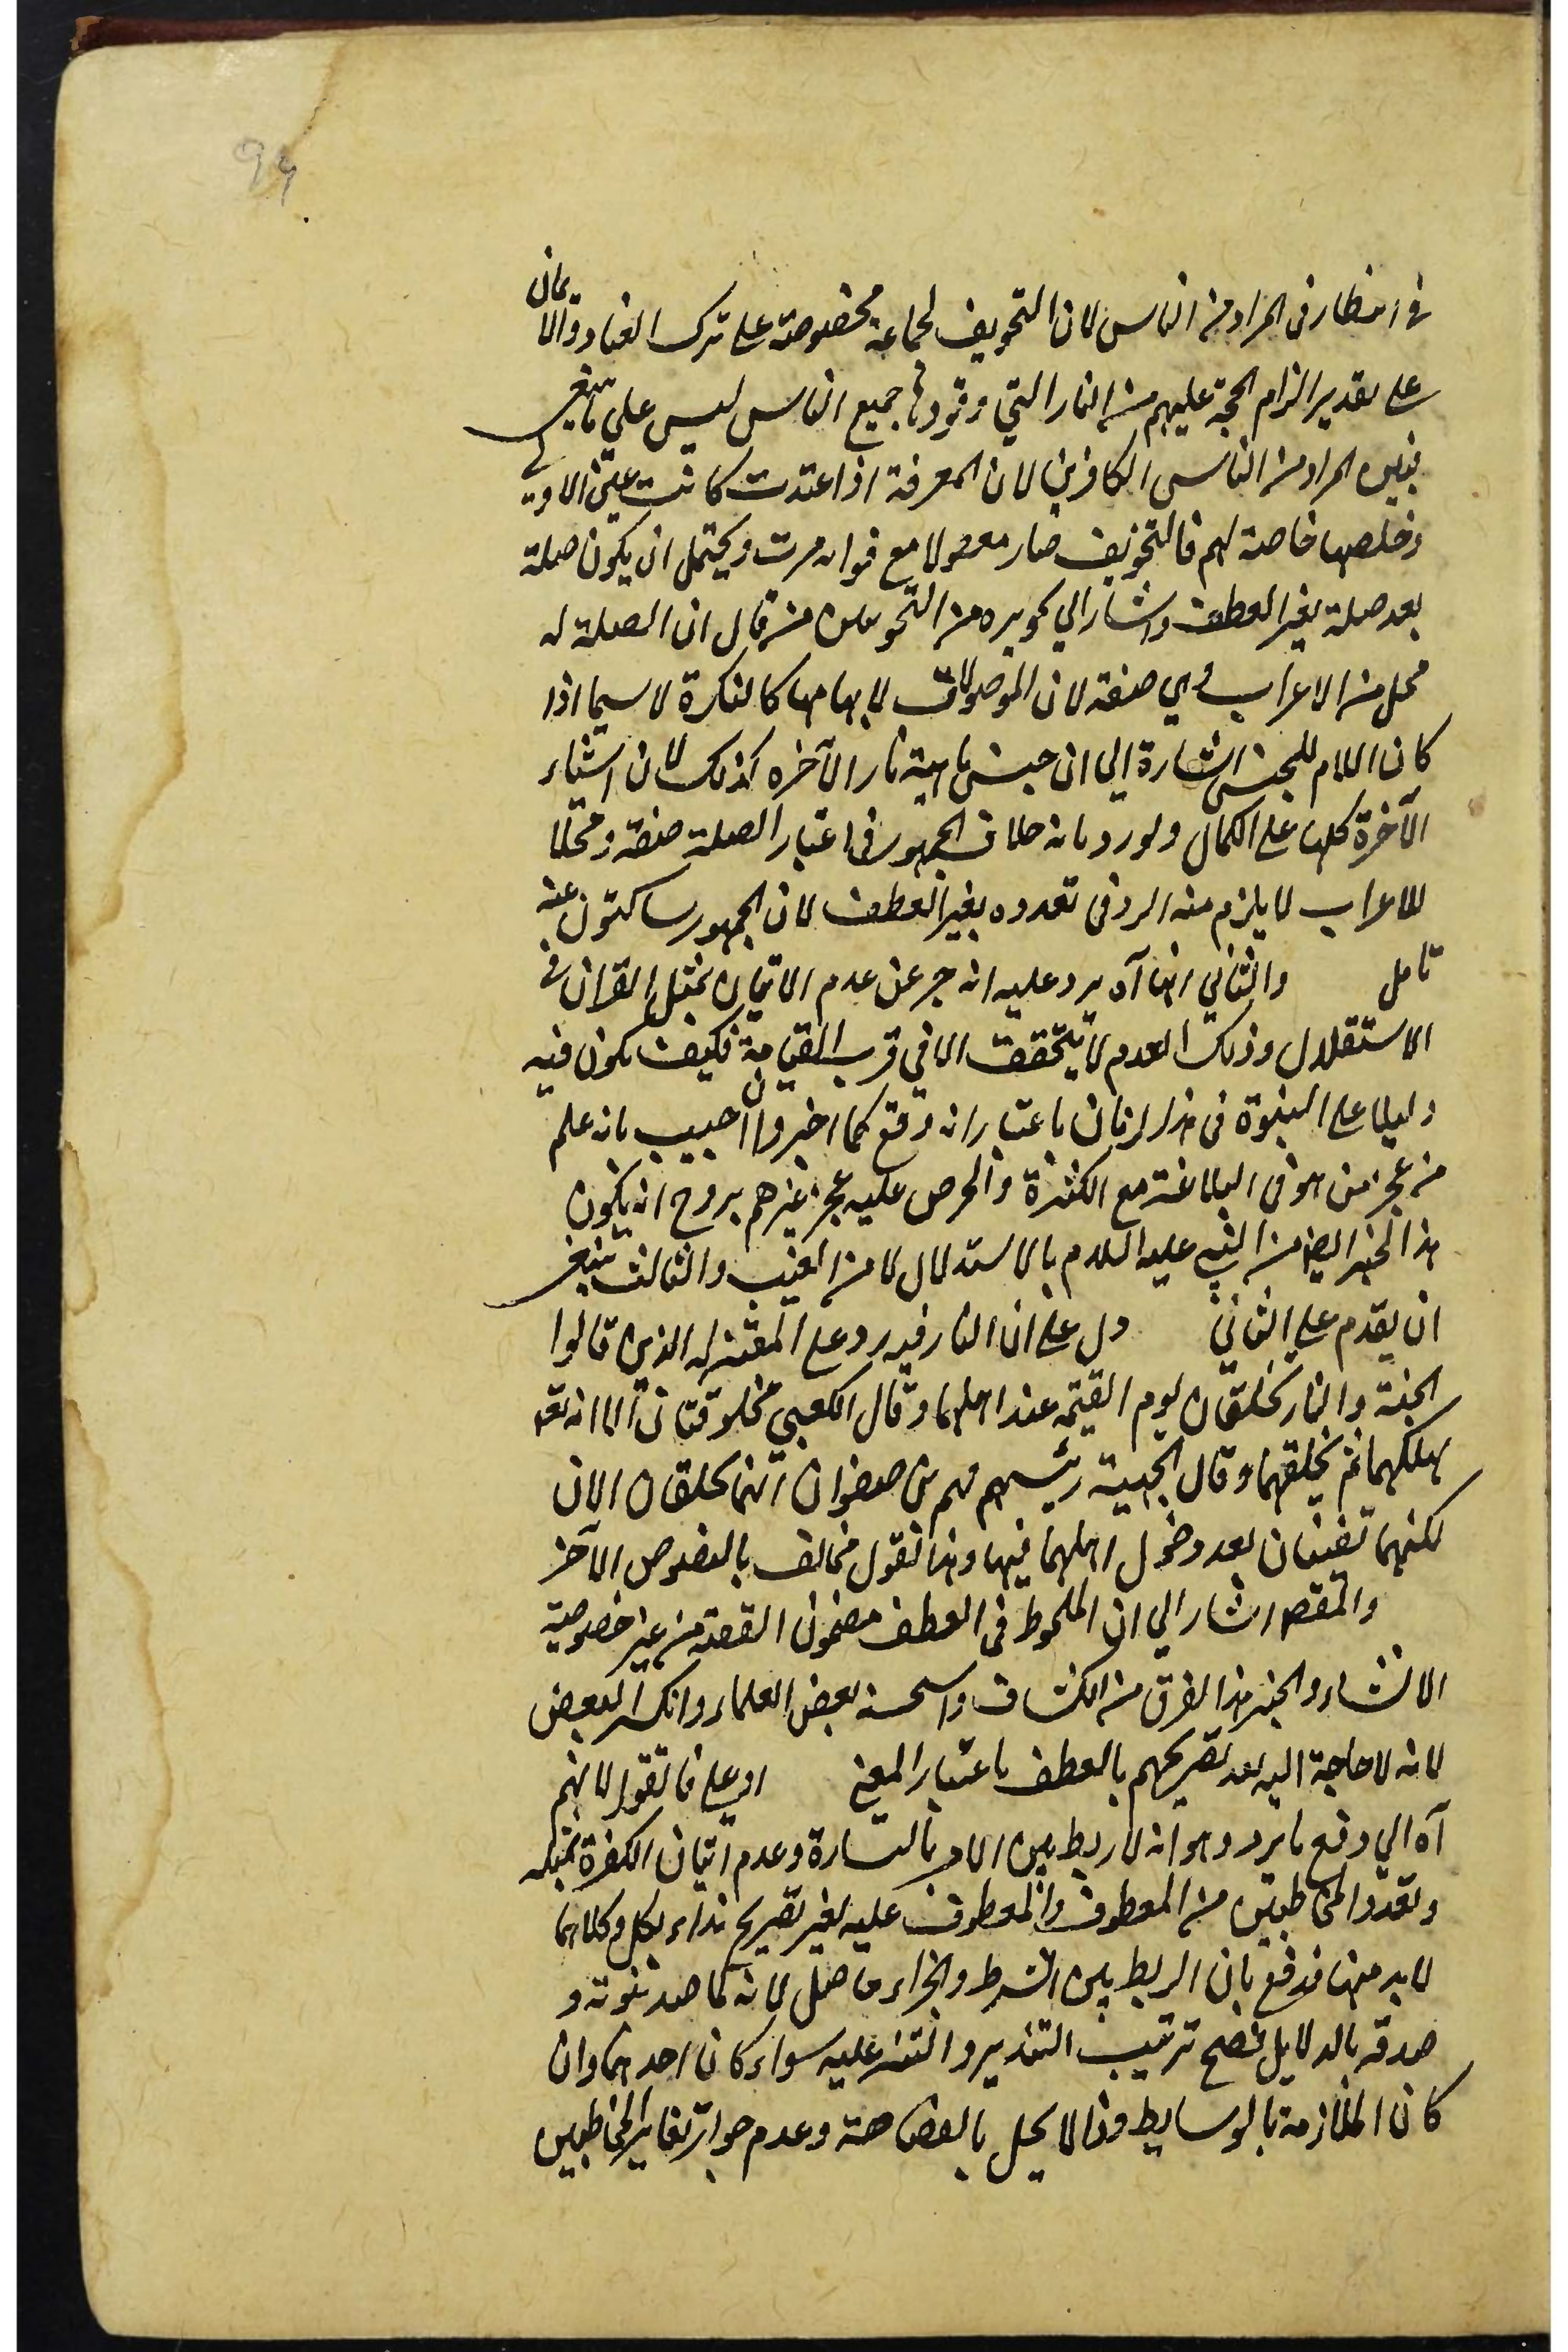 99
في انتظار في المراد من الناس لان التخويف لجماعة مخصوصة على ترك العناد والايمان
على تقدير الزام الحجة عليهم من النار التي وقودها جميع الناس ليس على ما ينبغي
فبين المراد من الناس الكافرين لان المعرفة اذا اعيدت كانت عين الاولى
خاصة لهم فالتخويف صار مع مرت ويحتمل ان يكون صلة
بعد صلة بغير العطف واشار الي تجويزه من النحويين من قال ان الصلة له
محل من الاعراب وهي صفة لان الموصولات لابهامها كالنكرة لا سيما اذا
كان اللام للجنس اشارة الي ان جنس ماهية نار الآخرة كذلك لان اشياء
الآخرة كلها على الكمال ولو رد بانه خلاف الجمهور في اعتبار الصلة صفة ومحلا
للاعراب لا يلزم منه الرد في تعدده بغير العطف لان الجمهور ساكتون عنه
تامل والثاني انها آه يرد عليه انه خبر عن عدم الاتيان بمثل القرآن في
الاستقبال وذلك العدم لا يتحقق الا في قرب القيامة فكيف يكون فيه
دليلا على النبوة في هذا الزمان باعتبار انه وقع كما اخبروا اجيب بانه علم
من عجز من هو في البلاغة مع الكثرة والحرص عليه عجز غيرهم يرد ح ان يكون
هذا الخبر ايضا من النبي عليه السلام بالاستدلال لا من الغيب والثالث ينبغي
ان يقدم على الثاني دل على ان النار فيه رد على المعتزله الذين قالوا
الجنة والنار تخلقان يوم القيمة عند اهلهما وقال الكعبي مخلوقتان الا انه تعه
يهلكهما ثم يخلقهما وقال الجهمية رئيسهم جهم بن صفوان انهما يخلقان الان
لكنهما تفنيان بعد دخول اهلهما فيهما وهذا القول مخالف بالنصوص الآخر
والمقصه اشار الي ان الملحوظ في العطف مضمون القصة من غير خصوصية
الانشاء والخبر هذا الفرق من الكشاف واستحسنه بعض العلماء وانكر البعض
لانه لا حاجة اليه بعد تصريحهم بالعطف باعتبار المعني او على فاتقوا لانهم
آه الي دفع ما يرد وهو انه لا ربط بين الامر بالبشارة وعدم اتيان الكفرة بمثله
وتعدد المخاطبين من المعطوف والمعطوف عليه بغير تصريح نداء لكل وكلاهما
لا بد منها فدفع بان الربط بين الشرط والجزاء حاصل لانه نبوته و
صدقه بالدلايل فصح ترتيب التنذير والتبشير عليه سواء كان احدهما وان
كان الملازمة بالوسايط وذا لا يخل بالفصاحة وعدم جواز تغاير المخاطبين